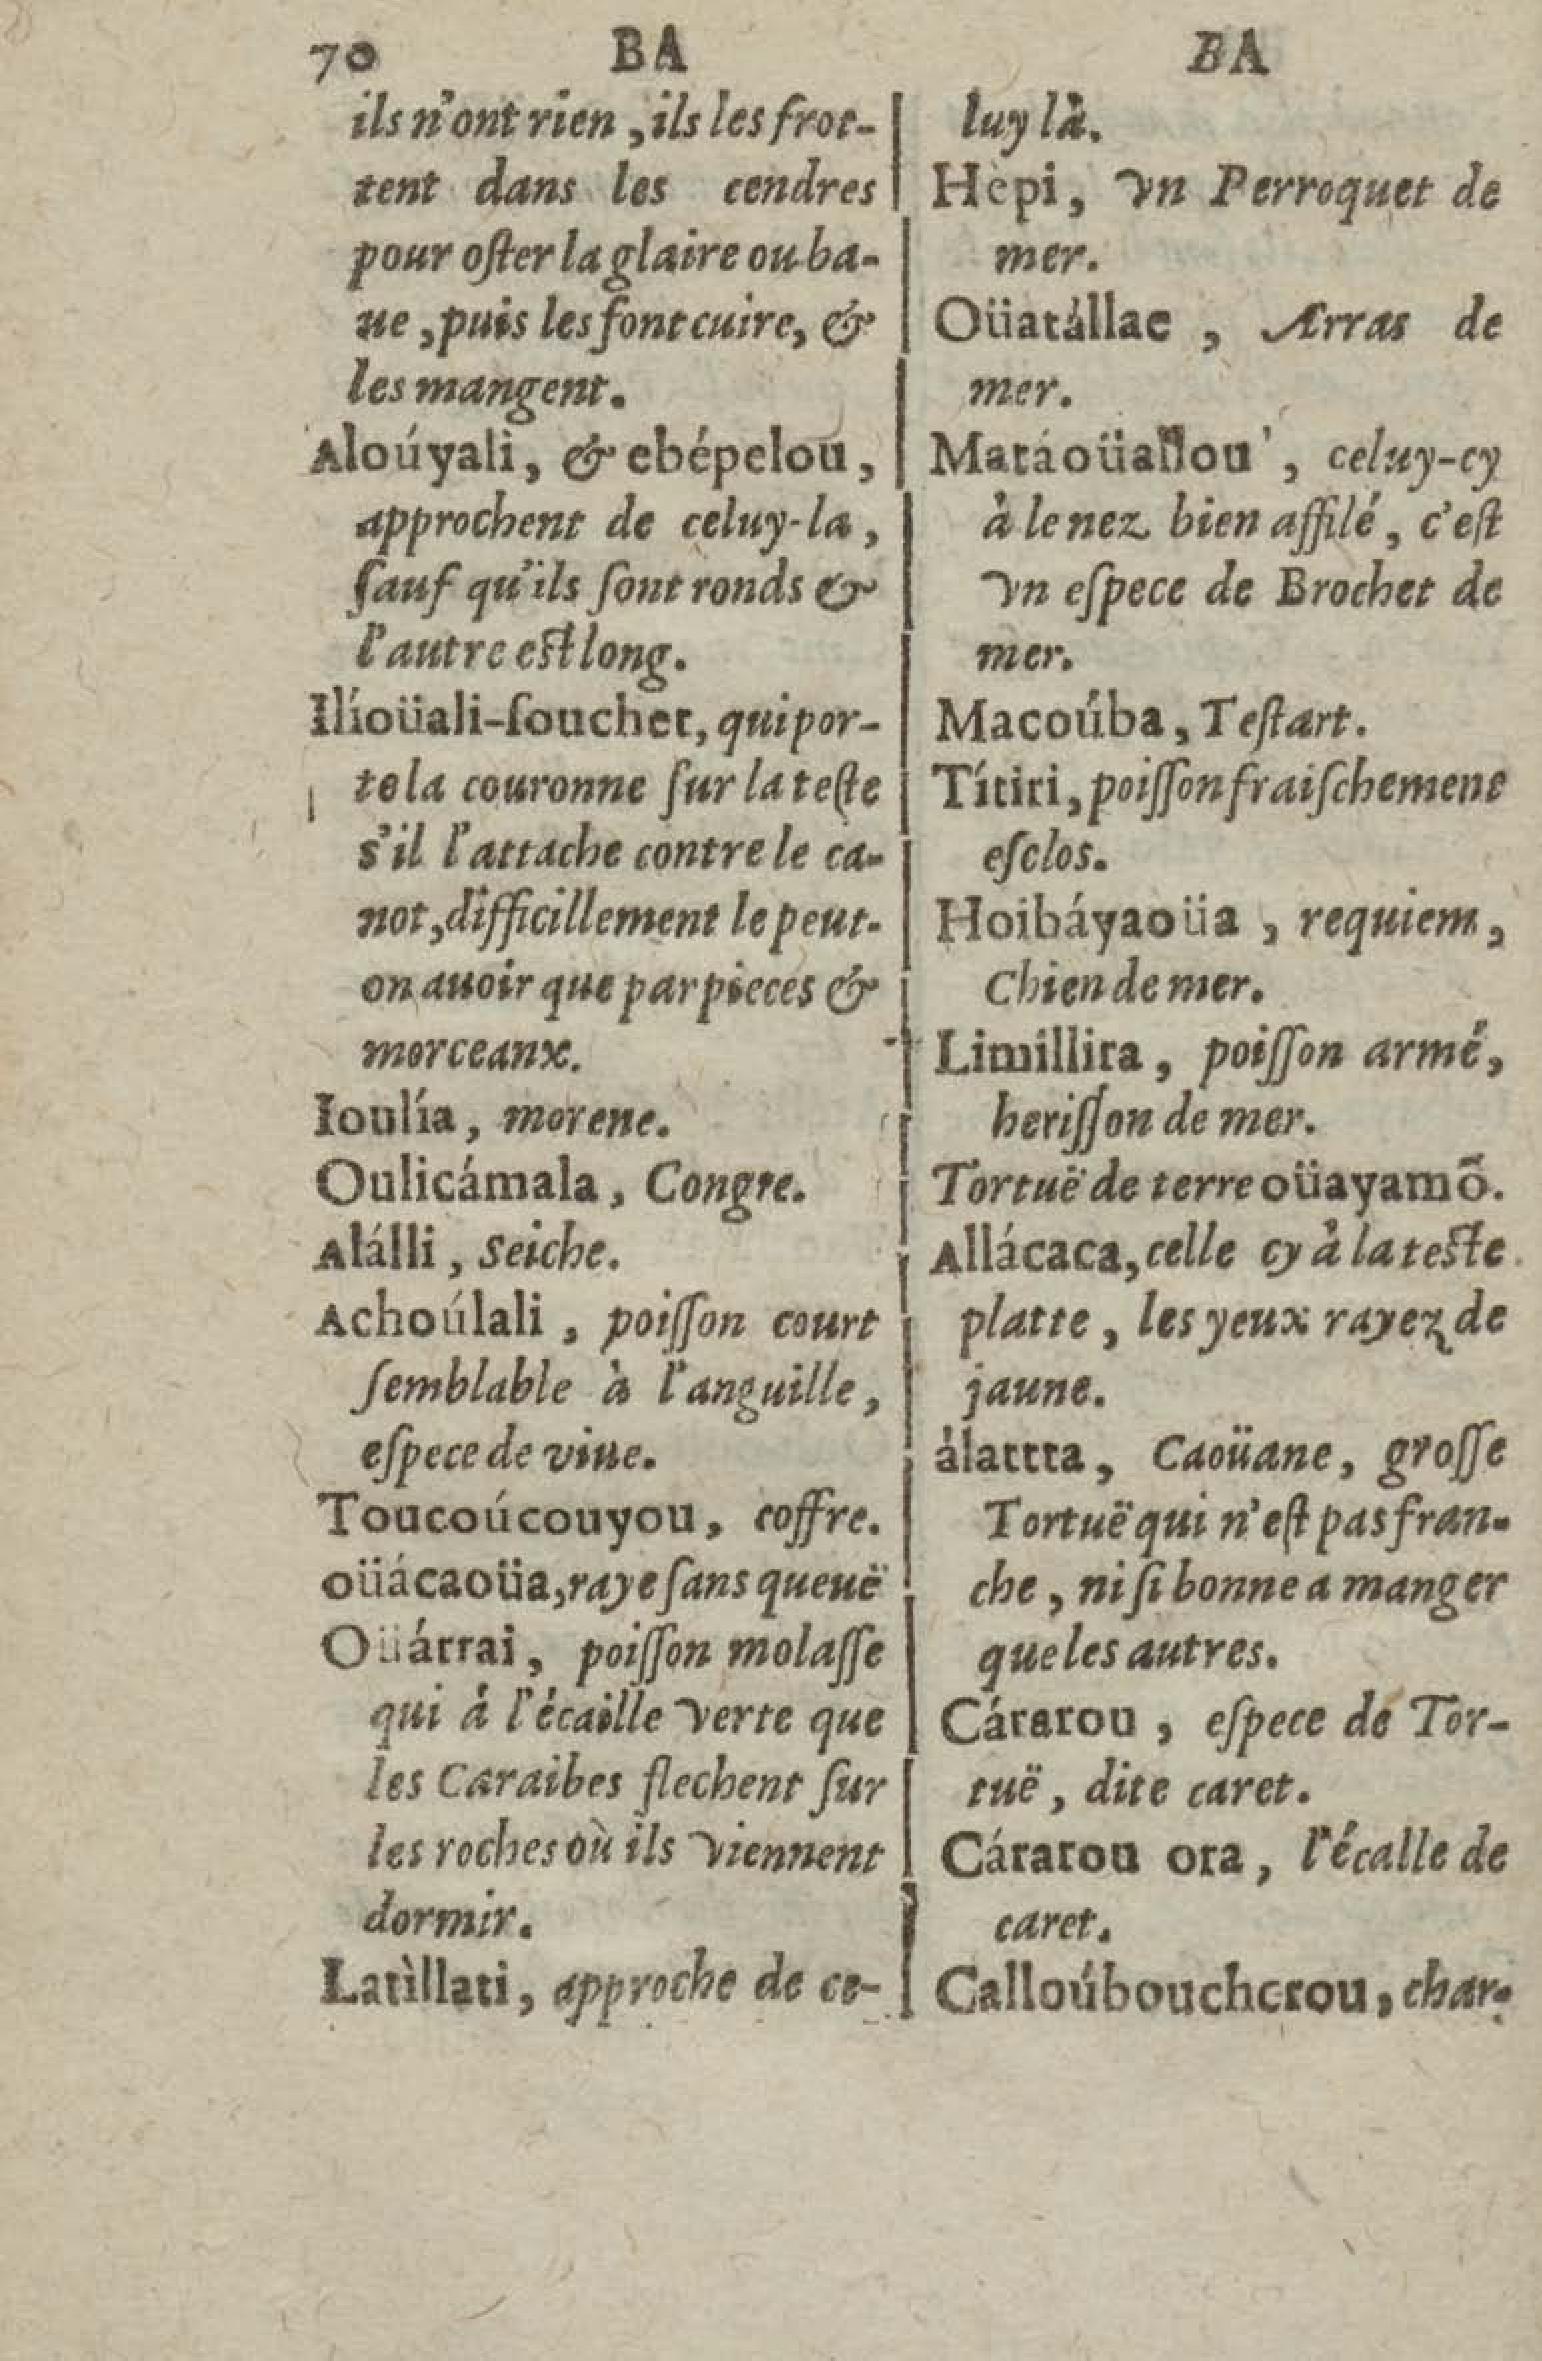 70 BA BA
ils n'ont rien, ils les frot-
tent dans les cendres
pour oſter la glaire ou ba-
ue, puis les font cuire, &
les mangent.
Aloúyali, & ebépelou,
approchent de celuy-la,
ſauf qu'ils ſont ronds &
l'autre eſt long.
Ilíoüali-ſouchet, qui por-
te la couronne ſur la teſte
s'il l'attache contre le ca-
not, difficillement le peut-
on auoir que par pieces &
morceanx.
Ioulía, morene.
Oulicámala, Congre.
Alálli, Seiche.
Achoúlali, poiſſon court
ſemblable à l'anguille,
eſpece de viue.
Toucoúcouyou, coffre.
oüácaoüa, raye ſans queuë
Oüárrai, poiſſon molaſſe
qui à l'écaille verte que
les Caraibes flechent ſur
les roches où ils viennent
dormir.
Latìllati, approche de ce-
luy là.
Hèpi, vn Perroquet de
mer.
Oüatállae, Arras de
mer.
Matáoüallou', celuy-cy
à le nez bien affilé, c'eſt
vn eſpece de Brochet de
mer.
Macoúba, Teſtart.
Títiri, poiſſon fraiſchement
eſclos.
Hoibáyaoüa, requiem,
Chien de mer.
Limillira, poiſſon armé,
heriſſon de mer.
Tortuë de terre oüayamõ.
Allácaca, celle cy à la teſte
platte, les yeux rayez de
jaune.
àlattta, Caoüane, groſſe
Tortuë qui n'eſt pas fran-
che, ni ſi bonne a manger
que les autres.
Cárarou, eſpece de Tor-
tuë, dite caret.
Cárarou ora, l'écalle de
caret.
Calloúboucherou, char-